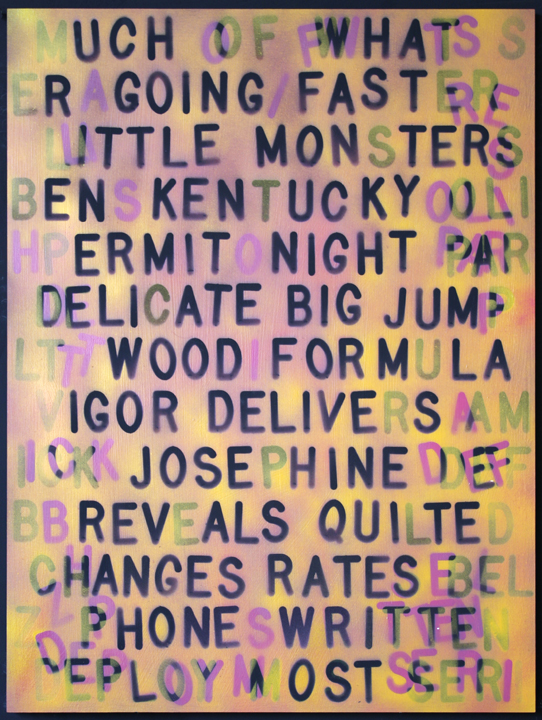 MUCH OF WHAT S
ERAGOING FASTER
LITTLE MONSTERS
BENS KENTUCKY OLLI
HPERMIT NIGHT PAR
DELICATE BIG JUMP
WOOD FORMULA
VIGOR DELIVERS AM
ICK JOSEPHINE DEF
B REVEALS QUILTED
CHANGES RATES BEL
PHONES WRITTEN
DEPLOY MOST SERI